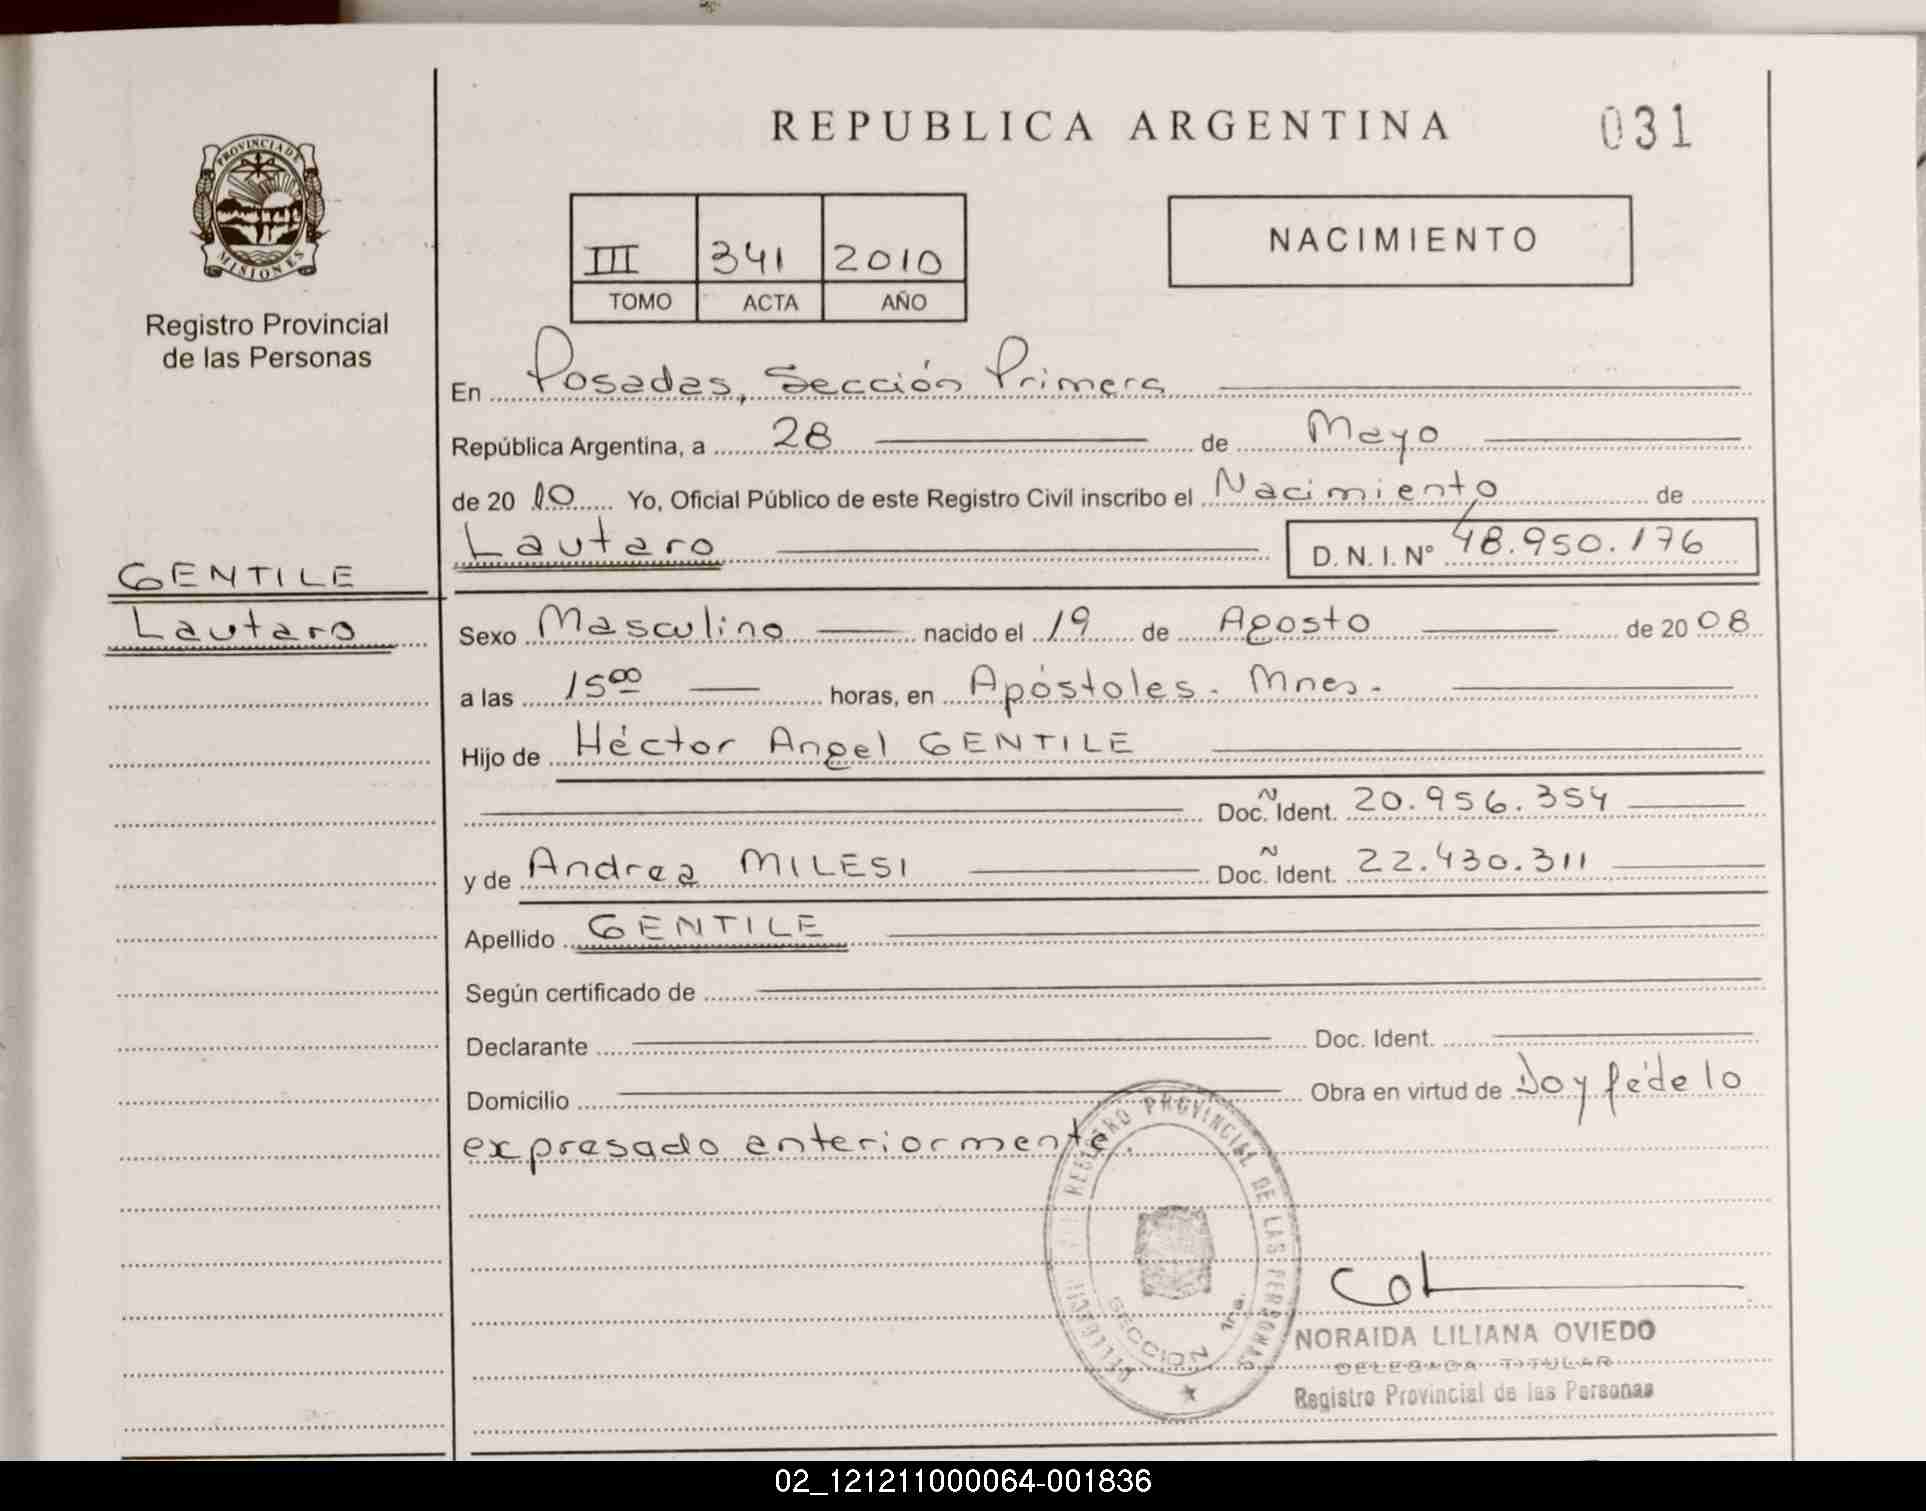 REPUBLICA ARGENTINA
031
PROVINCIA DE
MISIONES
Registro Provincial
de las Personas
III 341 2010
TOMO ACTA AÑO
NACIMIENTO
En Posadas, Sección Primera
República Argentina, a 28 de Mayo
de 20 10 Yo, Oficial Público de este Registro Civil inscribo el Nacimiento de
Lautaro D. N. I. N° 48.950.176
GENTILE
Lautaro
Sexo Masculino nacido el 19 de Agosto de 20 08
a las 15 00 horas, en Apóstoles - Mnes.
Hijo de Héctor Angel GENTILE
Doc. Ident. 20.956.354
y de Andrea MILESI Doc. Ident. 22.430.311
Apellido GENTILE
Según certificado de
Declarante Doc. Ident.
Domicilio Obra en virtud de Doy fé de lo
expresado anteriormente.
REGISTRO PROVINCIAL DE LAS PERSONAS
SECCION 1ra.
NORAIDA LILIANA OVIEDO
DELEGADA TITULAR
Registro Provincial de las Personas
02_121211000064-001836